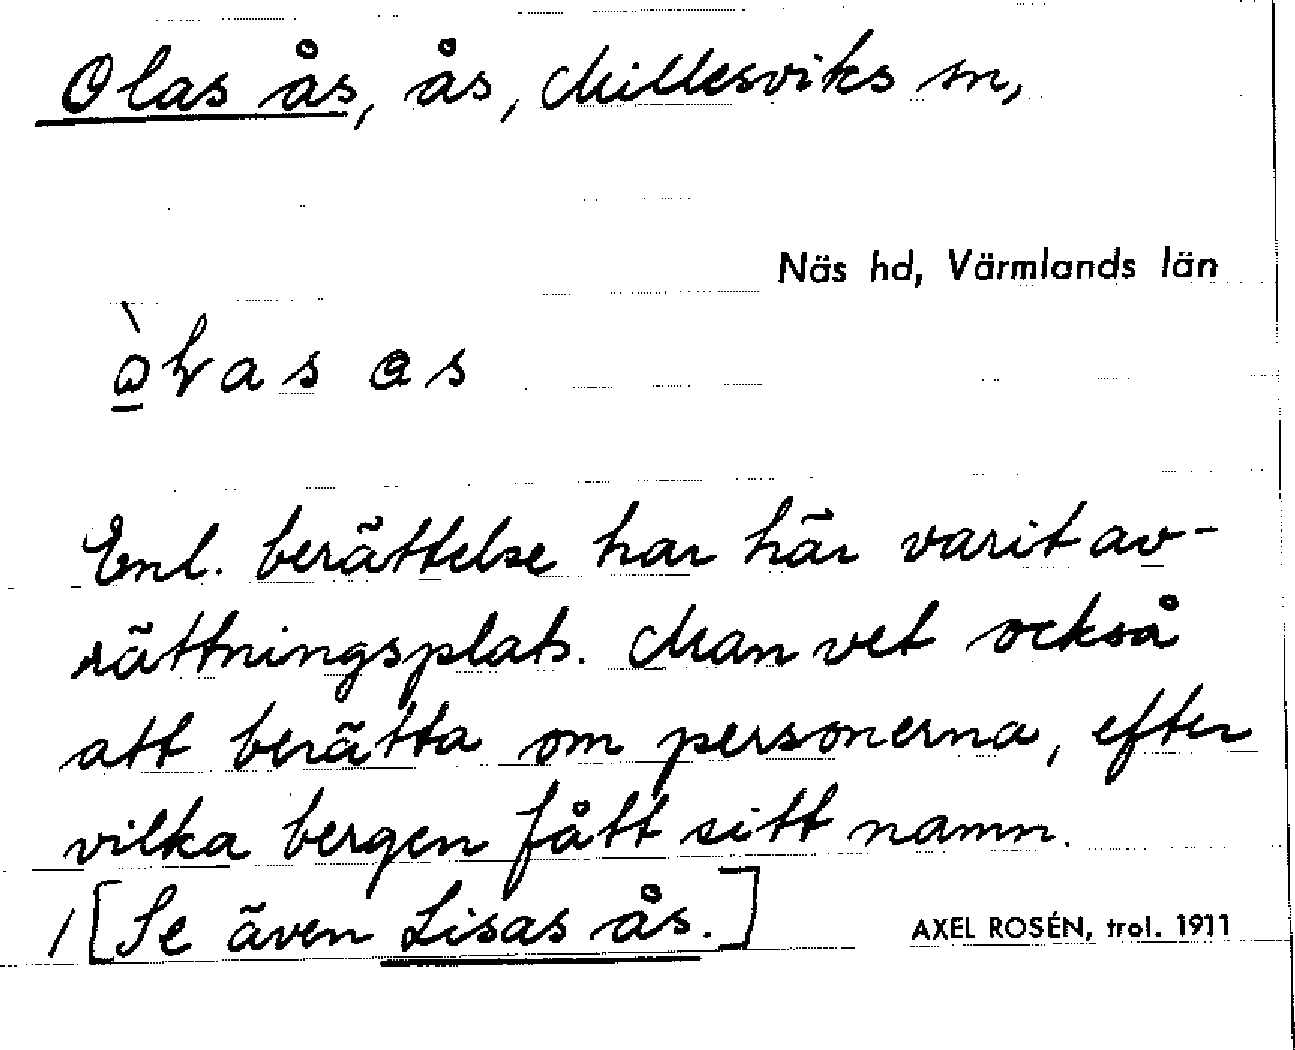 Olas ås, ås, Millesviks sn,
Näs hd, Värmlands län
Enl. berättelse har här varit av-
rättningsplats. Man vet också
att berätta om personerna, efter
vilka bergen fått sitt namn.
/ [Se även Lisas ås.]
AXEL ROSÉN, trol. 1911